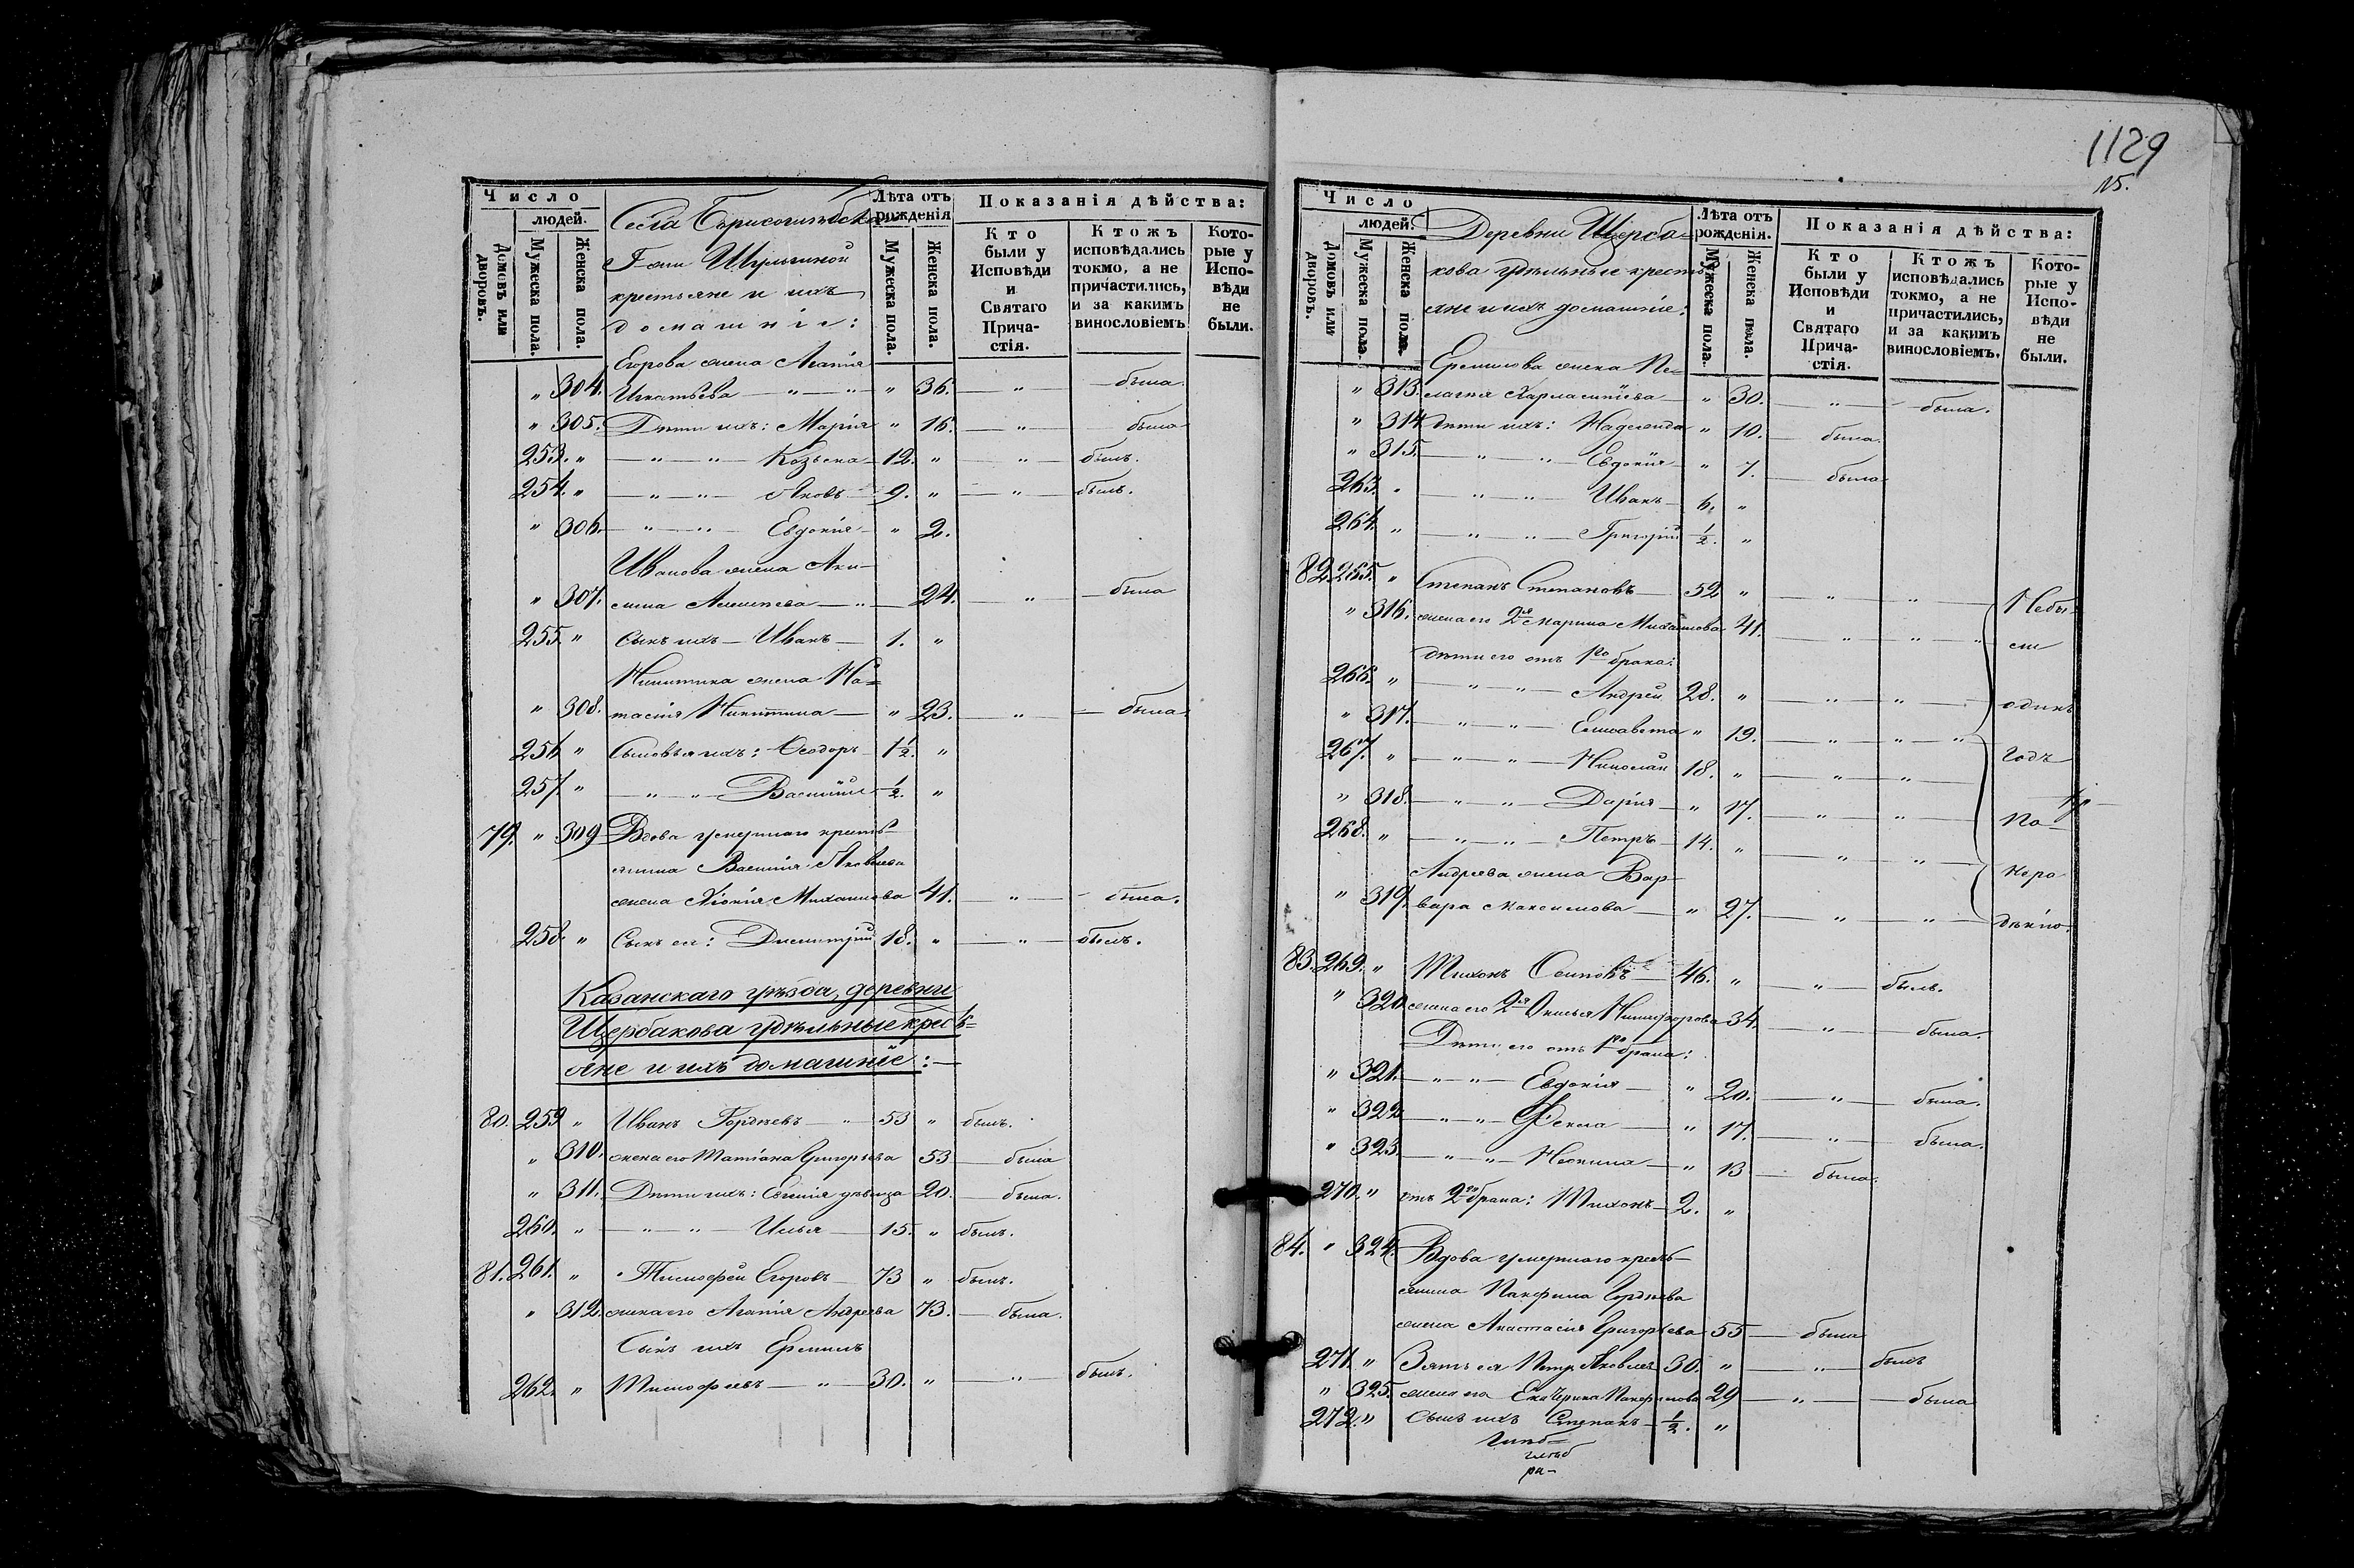 1129
15.
Число
людей.
Домовъ или дворовъ.
Мужеска пола.
Женска пола.
Села Борисоглѣбска
Г-жи Шульгиной
крестьяне и ихъ
домашніе:
Лѣта отъ рожденія
Мужеска пола.
Женска пола.
Показанія дѣйства:
Кто были у Исповѣди и Святаго Прича-стія.
Ктожъ исповѣдались токмо, а не причастились, и за какимъ винословіемъ
Кото-рые у Испо-вѣди не были.
Егорова жена Агапія
" 304. Игнатьева — " — " " 36. — " — была.
" 305. Дѣти ихъ: Марія " 16. — " — была
253. " — " — " — Козьма 12. " — " — былъ.
254. " — " — " — Яковъ 9. " — " — былъ.
" 306. — " — " — Евдокія " 2.
Иванова жена Аки-
" 307. лина Алексѣева — " — 24. — " — была
255. " Сынъ ихъ — Иванъ — 1. "
Никитина жена На=
" 308. тасія Никитина — " 23. — " — была.
256. " Сыновья ихъ: Ѳеодоръ 1½. "
257. " — " — " — Василій ½. "
79. " 309 Вдова умершаго кресть-
янина Василія Яковлева
жена Хіонія Михаилова 41. — " — была.
258. " Сынъ ея: Димитрій 18. " — " — былъ.
Казанскаго уѣзда, деревни
Щербакова удѣльные кресть=
яне и ихъ домашніе: —
80. 259 " Иванъ Гордѣевъ — " — 53 " былъ.
" 310. жена его Татіана Григорьева 53 — была
" 311. Дѣти ихъ: Евгенія дѣвица 20. — была.
260. " — " — " — Илья — 15. " былъ.
81. 261. " Тимофей Егоровъ — 73 " былъ.
" 312. жена его Агапія Андреева 73. — была.
Сынъ ихъ Ермилъ
262. " Тимофеевъ — " — 30. " — " — былъ.
Число
людей.
Домовъ или дворовъ.
Мужеска пола.
Женска пола.
Деревни Щерба=
кова удѣльные кресть=
яне и ихъ домашніе:
Лѣта отъ рожденія.
Мужеска пола.
Женска пола.
Показанія дѣйства:
Кто были у Исповѣди и Святаго Прича-стія.
Ктожъ исповѣдались токмо, а не причастились, и за какимъ винословіемъ.
Кото-рые у Испо-вѣди не были.
Ермилова жена Пе=
" 313. лагія — " 30. — " — была.
" 314. Дѣти ихъ: Надежда " 10. — была.
" 315. — " — " — Евдокія " 7. — была
263. " — " — " — Иванъ 6. "
264. " — " — " — Григорій ½. "
82. 265. " Степанъ Степановъ — 52 " — " — " — Небы-
" 316. жена его 2я Марина Михайлова 41. — " — " — " ли
дѣти его отъ 1го брака:
266. " — " — " — Андрей 28. " — " — " — одинъ
" 317. — " — " — Елисавета " 19. — " — " — "
267. " — " — " — Николай 18. " — " — " годъ
" 318. — " — " — Дарія — " 17. — " — " — по
268. " — " — " — Петръ — 14. " — " — "
Андреева жена Вар- нера
" 319. вара Максимова — " 27. — " — " — дѣнію.
83. 269. " Тихонъ Осиповъ — 46. " — " — былъ.
" 320. жена его 2я Никифорова 34. — " — была.
Дѣти его отъ 1го брака:
" 321. — " — " — Евдокія — " 20. — " — была.
" 322 — " — " — Ѳекла — " 17. — " — была.
" 323. — " — " — Неонила — " 13 — была.
270. " отъ 2го брака: Тихонъ — 2. "
84. " 324. Вдова умершаго кресть-
янина Панфила Гордѣева
жена Анастасія Григорьева 55 — была
271. " Зять ея Петръ Яковлевъ 30. " — " — былъ
" 325. жена его Екатерина Панфилова 29 — " — была
272. " Сынъ ихъ Степанъ — ½. "